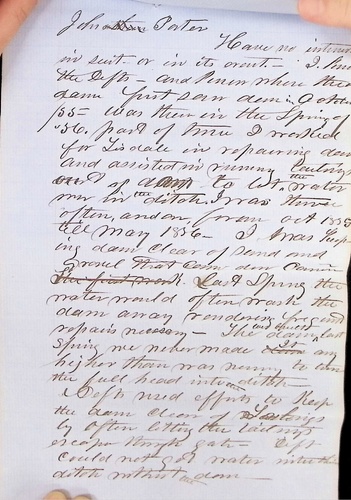 John Porter
Have no interest
in suit or in its event - I know
the Defts - and know where the
dam first saw dam in October
/55 - was there in the Spring of
'56, part of time I worked
for Tisdale in repairing dam
and assisted in running Tailings
out of dam to let the water
run in the ditch. I was there
often, and on, from Oct 1855
till May 1856 - I was keep
ing dam clear of sand and
gravel that came down
Last Spring the
water would often wash the
dam away rendering frequent
repairs necessary - The dam last
Spring we never made it any
higher than was necessary to turn
the full head into ditch -
Defts used efforts to keep
the dam clear of Tailings
by often letting the tailings
escape through gate - Deft
could not get water into the
ditch without the dam -